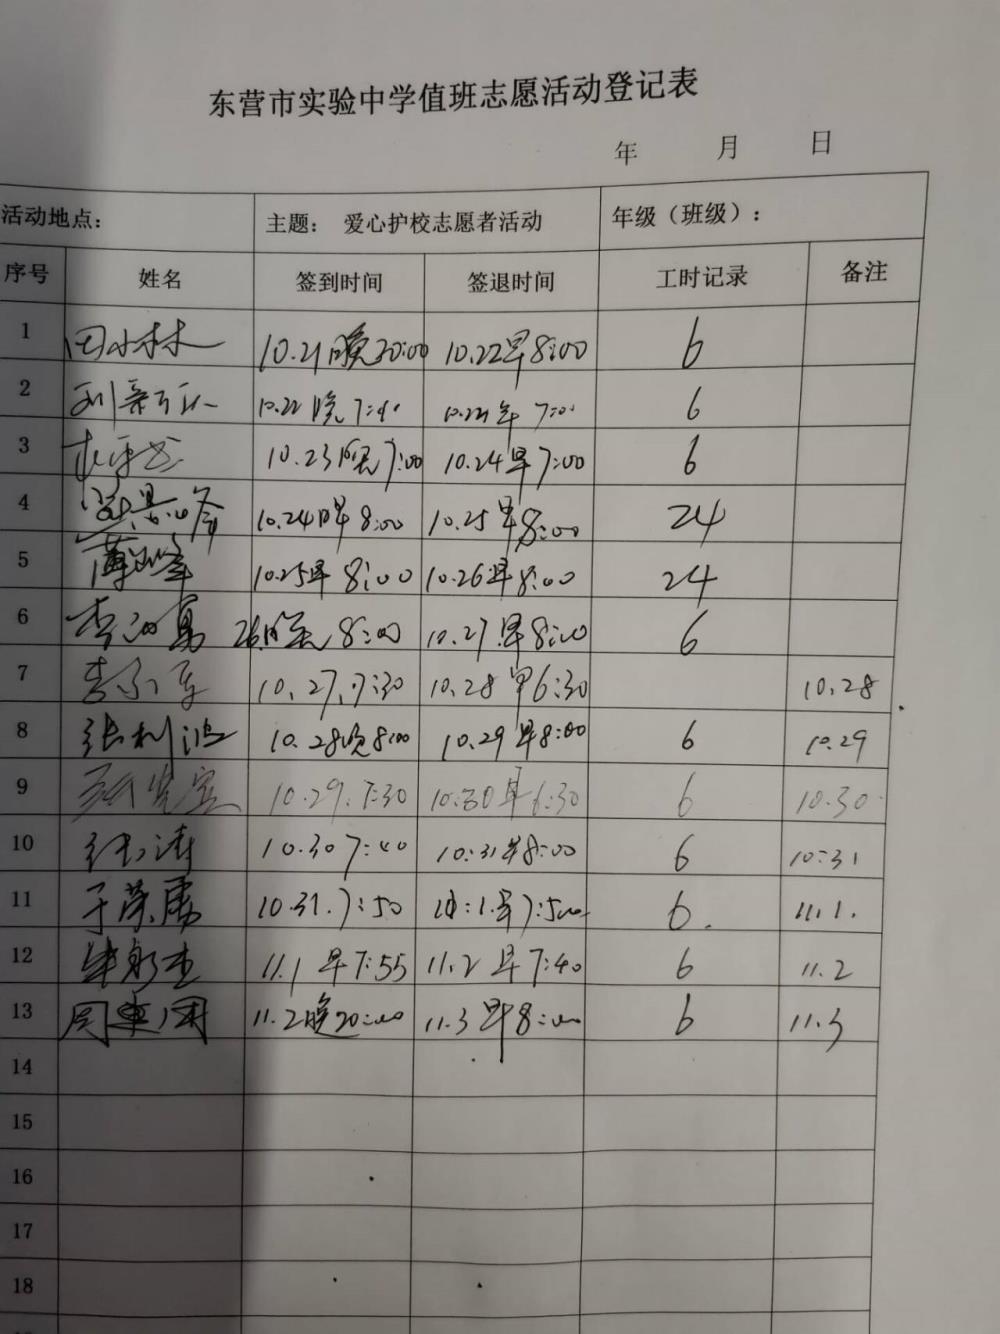 东营市实验中学值班志愿活动登记表
年 月 日
活动地点: 主题: 爱心护校志愿者活动 年级（班级）:
序号 姓名 签到时间 签退时间 工时记录 备注
1 田小林 10.21晚20:00 10.22早8:00 6
2 10.22晚7: 7:00 6
3 10.23晚7:00 10.24早7:00 6
4 10.24早8:00 10.25早8:00 24
5 10.25早8:00 10.26早8:00 24
6 26晚8:00 10.27早8:00 6
7 10.27.7:30 10.28早6:30 10.28
8 张利 10.28晚8:00 10.29早8:00 6 10.29
9 10.29.7:30 10.30早6:30 6 10.30
10 10.30 7:40 10:31早8:00 6 10:31
11 于荣 10.31.7:50 早7:50 6. 11.1.
12 11.1早7:55 11.2早7:40 6 11.2
13 周 11.2晚20:00 11.3早8:00 6 11.3
14
15
16
17
18